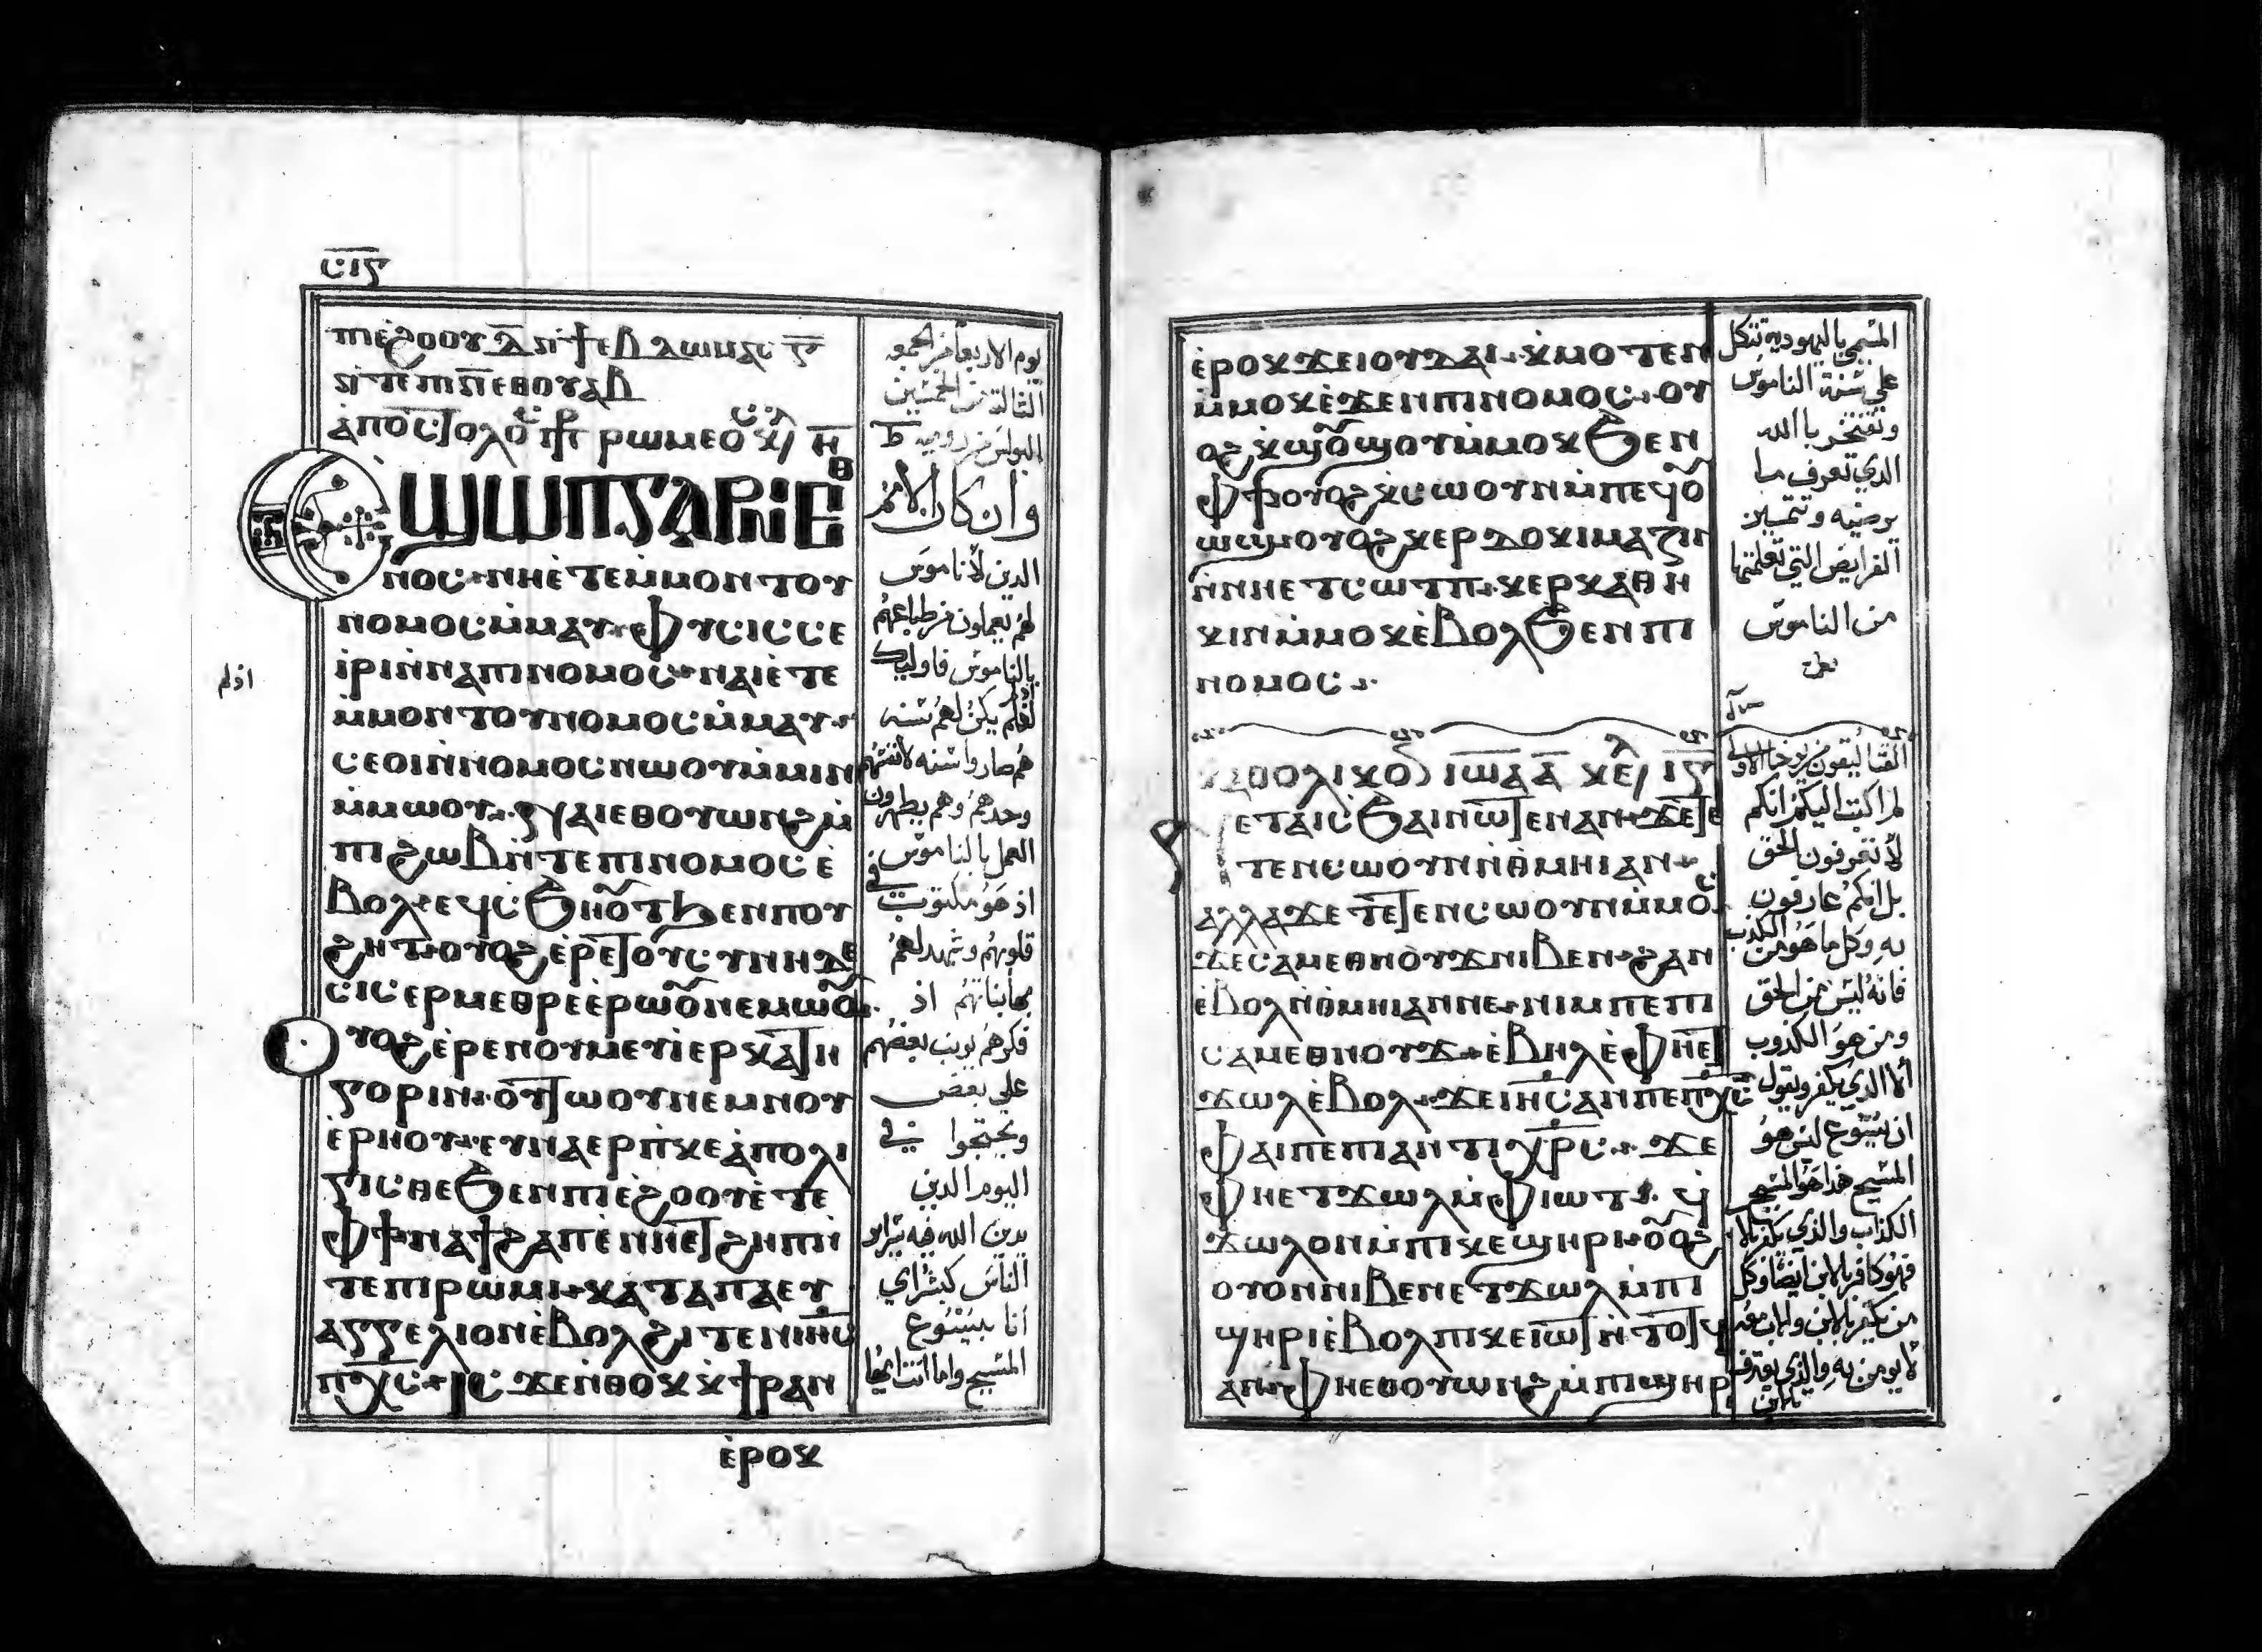 ⲤⲒⲊ
ⲡⲓⲉ̀ϩⲟⲟⲩ ⲇ̅ ⲛ̀ϯⲉⲃⲇⲱⲙⲁⲥ ⲅ̅
ⲛ̀ⲧⲉ ⲡⲓⲛ̅ ⲉⲑⲟⲩⲁⲃ
ⲣⲱⲙⲉⲟⲥ ⲕⲉ ⲏ̅
ϢⲰⲠ ⲄⲀⲢ ⲚⲒⲈⲐ
ⲛⲟⲥ ⲛⲏⲉ̀ⲧⲉ ⲙ̀ⲙⲟⲛⲧⲟⲩ
ⲛⲟⲙⲟⲥ ⲙ̀ⲙⲁⲩ ⲫⲩⲥⲓⲥ ⲥⲉ
ⲓ̀ⲣⲓ ⲛ̀ⲛⲁ ⲡⲓⲛⲟⲙⲟⲥ ⲛⲁⲓ ⲉ̀ⲧⲉ
ⲙ̀ⲙⲟⲛⲧⲟⲩ ⲛⲟⲙⲟⲥ ⲙ̀ⲙⲁⲩ
ⲥⲉⲟⲓ ⲛ̀ⲛⲟⲙⲟⲥ ⲛⲱⲟⲩ ⲙ̀ⲙⲓⲛ
ⲙ̀ⲙⲱⲟⲩ ⲛⲁⲓ ⲉⲑⲟⲩⲱⲛϩ ⲙ̀
ⲡⲓϩⲱⲃ ⲛ̀ⲧⲉ ⲡⲓⲛⲟⲙⲟⲥ ⲉ̀
ⲃⲟⲗ ⲉϥⲥϧⲏⲟⲩⲧ ϧⲉⲛ ⲡⲟⲩ
ϩⲏⲧ ⲟⲩⲟϩ ⲉ̀ⲣⲉ ⲧⲟⲩⲥⲩⲛⲏⲇⲉ
ⲥⲓⲥ ⲉⲣⲙⲉⲑⲣⲉ ⲉ̀ⲣⲱⲟⲩ ⲛⲉⲙⲱⲟⲩ
ⲟⲩⲟϩ ⲉ̀ⲣⲉ ⲛⲟⲩⲙⲉⲩⲓ̀ ⲉⲣⲕⲁⲧⲏ
ⲅⲟⲣⲓⲛ ⲟⲩⲧⲱⲟⲩ ⲛⲉⲙ ⲛⲟⲩ
ⲉ̀ⲣⲏⲟⲩ ⲉⲩⲛⲁⲉⲣⲡ̀ⲕⲉⲁ̀ⲡⲟⲗⲓ
ⲅⲓⲥⲑⲉ ϧⲉⲛ ⲡⲓⲉ̀ϩⲟⲟⲩ ⲉ̀ⲧⲉ
ⲫϯ ⲛⲁϯϩⲁⲡ ⲉ̀ⲛⲛⲏⲉⲧϩⲏⲡ ⲛ̀
ⲧⲉ ⲡⲓⲣⲱⲙⲓ ⲕⲁⲧⲁ ⲡⲁⲉⲩ
ⲁⲅⲅⲉⲗⲓⲟⲛ ⲉ̀ⲃⲟⲗϩⲓⲧⲉⲛ ⲓⲏⲥ
ⲡⲭⲥ ⲓⲥϫⲉ ⲛ̀ⲑⲟⲕ ⲕ̀ϯⲣⲁⲛ
ⲉ̀ⲣⲟⲕ
يوم الاربعا من الجمعه
الثالثه من الخمسين
البولس من روميه
وان كان الامم
الذين لا ناموس
لهم يعملون من طباعهم
بالناموس فاوليك
لم يكن لهم سنه
هم صاروا سنه لانفسهم
وحدهم وهم يظهرون
العمل بالناموس
اذ هو مكتوب في
قلوبهم وتشهد لهم
اذ
فكرهم يوبخ بعضهم
على بعض
ويحتجوا في
اليوم الذي
يدين الله فيه سراير
الناس كبشراي
انا بيسوع
المسيح واما انت ايها
ⲉ̀ⲣⲟⲕ ϫⲉ ⲓⲟⲩⲇⲁⲓ ⲕ̀ⲙⲟⲧⲉⲛ
ⲙ̀ⲙⲟⲕ ⲉ̀ϫⲉⲛ ⲡⲓⲛⲟⲙⲟⲥ ⲟⲩ
ⲟϩ ⲕ̀ϣⲟⲩϣⲟⲩ ⲙ̀ⲙⲟⲕ ϧⲉⲛ
ⲫϯ ⲟⲩⲟϩ ⲕ̀ⲥⲱⲟⲩⲛ ⲙ̀ⲡⲉϥⲟⲩ
ⲱϣ ⲟⲩⲟϩ ⲕⲉⲣⲇⲟⲕⲓⲙⲁⲍⲓⲛ
ⲛ̀ⲛⲏⲉⲧⲥⲱⲧⲡ ⲕⲉⲣⲕⲁⲑⲏ
ⲕⲓⲛ ⲙ̀ⲙⲟⲕ ⲉ̀ⲃⲟⲗϧⲉⲛ ⲡⲓ
ⲛⲟⲙⲟⲥ
ⲕⲁⲑⲟⲗⲓⲕⲟⲛ ⲓⲱⲁ ⲁ̅ ⲕⲉ ⲓⲋ
ⲉⲧⲁⲓⲥϧⲁⲓ ⲛⲱⲧⲉⲛ ⲁⲛ ϫⲉ ⲧⲉ
ⲧⲉⲛⲥⲱⲟⲩⲛ ⲛ̀ⲑⲙⲏⲓ ⲁⲛ
ⲁⲗⲗⲁ ϫⲉ ⲧⲉⲧⲉⲛⲥⲱⲟⲩⲛ ⲙ̀ⲙⲟⲥ
ϫⲉ ⲥⲁⲙⲉⲑⲛⲟⲩϫ ⲛⲓⲃⲉⲛ ϩⲁⲛ
ⲉ̀ⲃⲟⲗ ⲛ̀ⲑⲙⲏⲓ ⲁⲛ ⲛⲉ ⲛⲓⲙ ⲡⲉ ⲡⲓ
ⲥⲁⲙⲉⲑⲛⲟⲩϫ ⲉ̀ⲃⲏⲗ ⲉ̀ⲫⲏⲉⲧ
ϫⲱⲗ ⲉ̀ⲃⲟⲗ ϫⲉ ⲓⲏⲥ ⲁⲛ ⲡⲉ ⲡⲭⲥ
ⲫⲁⲓ ⲡⲉ ⲡⲓⲁⲛⲧⲓⲭⲣⲥ ϫⲉ
ⲫⲏⲉⲧϫⲱⲗ ⲙ̀ⲫⲓⲱⲧ ϥ̀
ϫⲱⲗ ⲟⲛ ⲙ̀ⲡⲓⲕⲉϣⲏⲣⲓ ⲟⲩⲟϩ
ⲟⲩⲟⲛ ⲛⲓⲃⲉⲛ ⲉⲧϫⲱⲗ ⲙ̀ⲡⲓ
ϣⲏⲣⲓ ⲉ̀ⲃⲟⲗ ⲡⲓⲕⲉⲓⲱⲧ ⲛ̀ⲧⲟⲧϥ
ⲁⲛ ⲫⲏⲉⲑⲟⲩⲱⲛϩ ⲙ̀ⲡⲓϣⲏⲣⲓ
المسمى باليهودية تتكل
على سنة الناموس
وتفتخر بالله
الذي تعرف ما
يرضيه وتميز
الفرايض التي تعلمتها
من الناموس
القتاليقون من يوحنا الاولى
لم اكتب اليكم انكم
لا تعرفون الحق
بل انكم عارفون
به وكل ما هو من الكذب
فانه ليس من الحق
ومن هو الكذوب
الا الذي يكفر ويقول
ان يسوع ليس هو
المسيح هذا هو المسيح
الكذاب والذي يكفر بالاب
فهو كافر بالابن ايضا وكل
من يكفر بالابن
لا يومن به والذي يعترف
بالابن